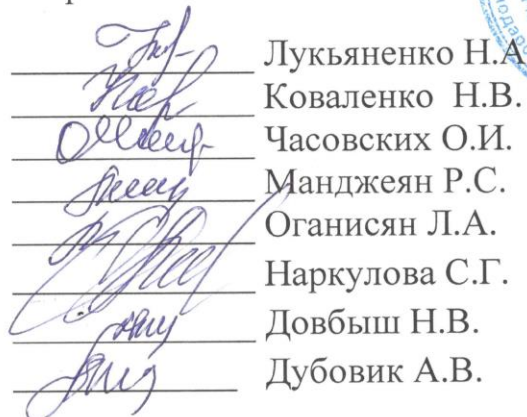 Лукьяненко Н.А
Коваленко Н.В.
Часовских О.И.
Манджеян Р.С.
Оганисян Л.А.
Наркулова С.Г.
Довбыш Н.В.
Дубовик А.В.